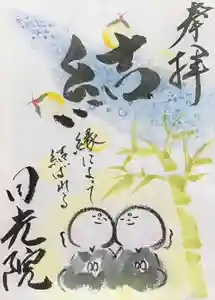 奉拝
結
縁によって
結ばれる
日光院